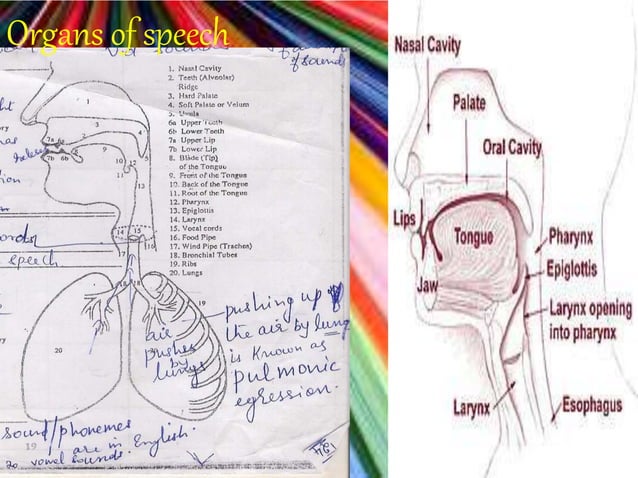 Organs of speech
of sounds
1. Nasal Cavity
2. Teeth (Alveolar)
Ridge
3. Hard Palate
4. Soft Palate or Velum
5. Uvula
6a Upper Teeth
6b Lower Teeth
7a Upper Lip
7b Lower Lip
8. Blade (Tip)
of the Tongue
9. Front of the Tongue
10. Back of the Tongue
11. Root of the Tongue
12. Pharynx
13. Epiglottis
14. Larynx
15. Vocal cords
16. Food Pipe
17. Wind Pipe (Trachea)
18. Bronchial Tubes
19. Ribs
20. Lungs
1
2
3
4
5
7a 6a
7b 6b
8
9
10
12
11
13
13
14 15
17
16
18 18
19
20
speech
air
pushes
by
lungs
pushing up of
the air by lung
is known as
pulmonic
egression.
sound/phonemes
are in English.
19
20 vowel sounds.
Nasal Cavity
Palate
Oral Cavity
Lips
Tongue
Pharynx
Jaw
Epiglottis
Larynx opening
into pharynx
Larynx
Esophagus